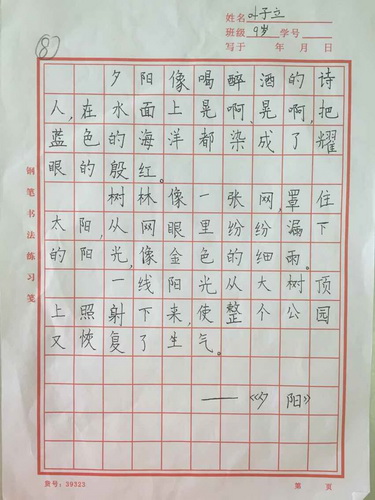 姓名 叶子立
班级 9岁 学号
写于 年 月 日
(8)
夕阳像喝醉酒的诗
人,在水面上晃啊、晃啊,把
蓝色的海洋都染成了耀
眼的殷红。
树林像一张网,罩住
太阳,从网眼里纷纷漏下
的阳光,像金色的细雨。
一线阳光从大树顶
上照射下来,使整个公园
又恢复了生气。
——《夕阳》
钢笔书法练习笺
货号:39323
第 页